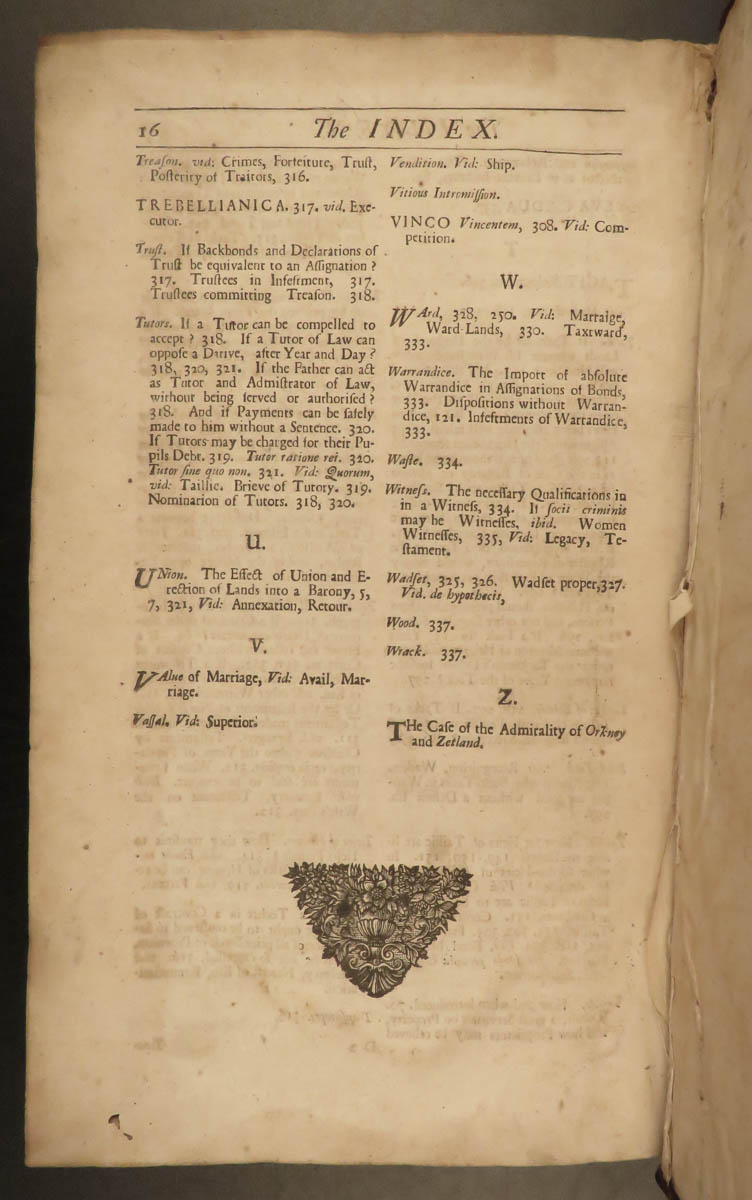 16 The INDEX.
Treaſon. vid: Crimes, Forfeiture, Truſt,
Poſterity of Traitors, 316.
TREBELLIANICA. 317. vid. Exe-
cutor.
Truſt. If Backbonds and Declarations of
Truſt be equivalent to an Aſſignation?
317. Truſtees in Infeftment, 317.
Truſtees committing Treaſon. 318.
Tutors. If a Tutor can be compelled to
accept? 318. If a Tutor of Law can
oppoſe a Dative, after Year and Day?
318, 320, 321. If the Father can act
as Tutor and Admiſtrator of Law,
without being ſerved or authoriſed?
318. And if Payments can be ſafely
made to him without a Sentence. 320.
If Tutors may be charged for their Pu-
pils Debt. 319. Tutor ratione rei. 320.
Tutor ſine quo non. 321. Vid: Quorum,
vid: Taillie. Brieve of Tutory. 319.
Nomination of Tutors. 318, 320.
U.
UNion. The Effect of Union and E-
rection of Lands into a Barony, 5,
7, 321, Vid: Annexation, Retour.
V.
VAlue of Marriage, Vid: Avail, Mar-
riage.
Vaſſal. Vid: Superior.
Vendition. Vid: Ship.
Vitious Intromiſſion.
VINCO Vincentem, 308. Vid: Com-
petition.
W.
WArd, 328, 250. Vid: Marraige,
Ward-Lands, 330. Taxtward,
333.
Warrandice. The Import of abſolute
Warrandice in Aſſignations of Bonds,
333. Diſpoſitions without Warran-
dice, 121. Infeftments of Warrandice,
333.
Waſte. 334.
Witneſs. The neceſſary Qualifications in
in a Witneſs, 334. If ſocii criminis
may be Witneſſes, ibid. Women
Witneſſes, 335, Vid: Legacy, Te-
ſtament.
Wadſet, 325, 326. Wadſet proper, 327.
Vid. de hypothecis,
Wood. 337.
Wrack. 337.
Z.
THe Caſe of the Admirality of Orkney
and Zetland.